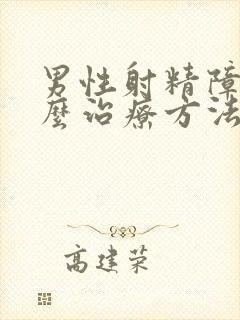 男性射精障
麼治療方法
高建荣